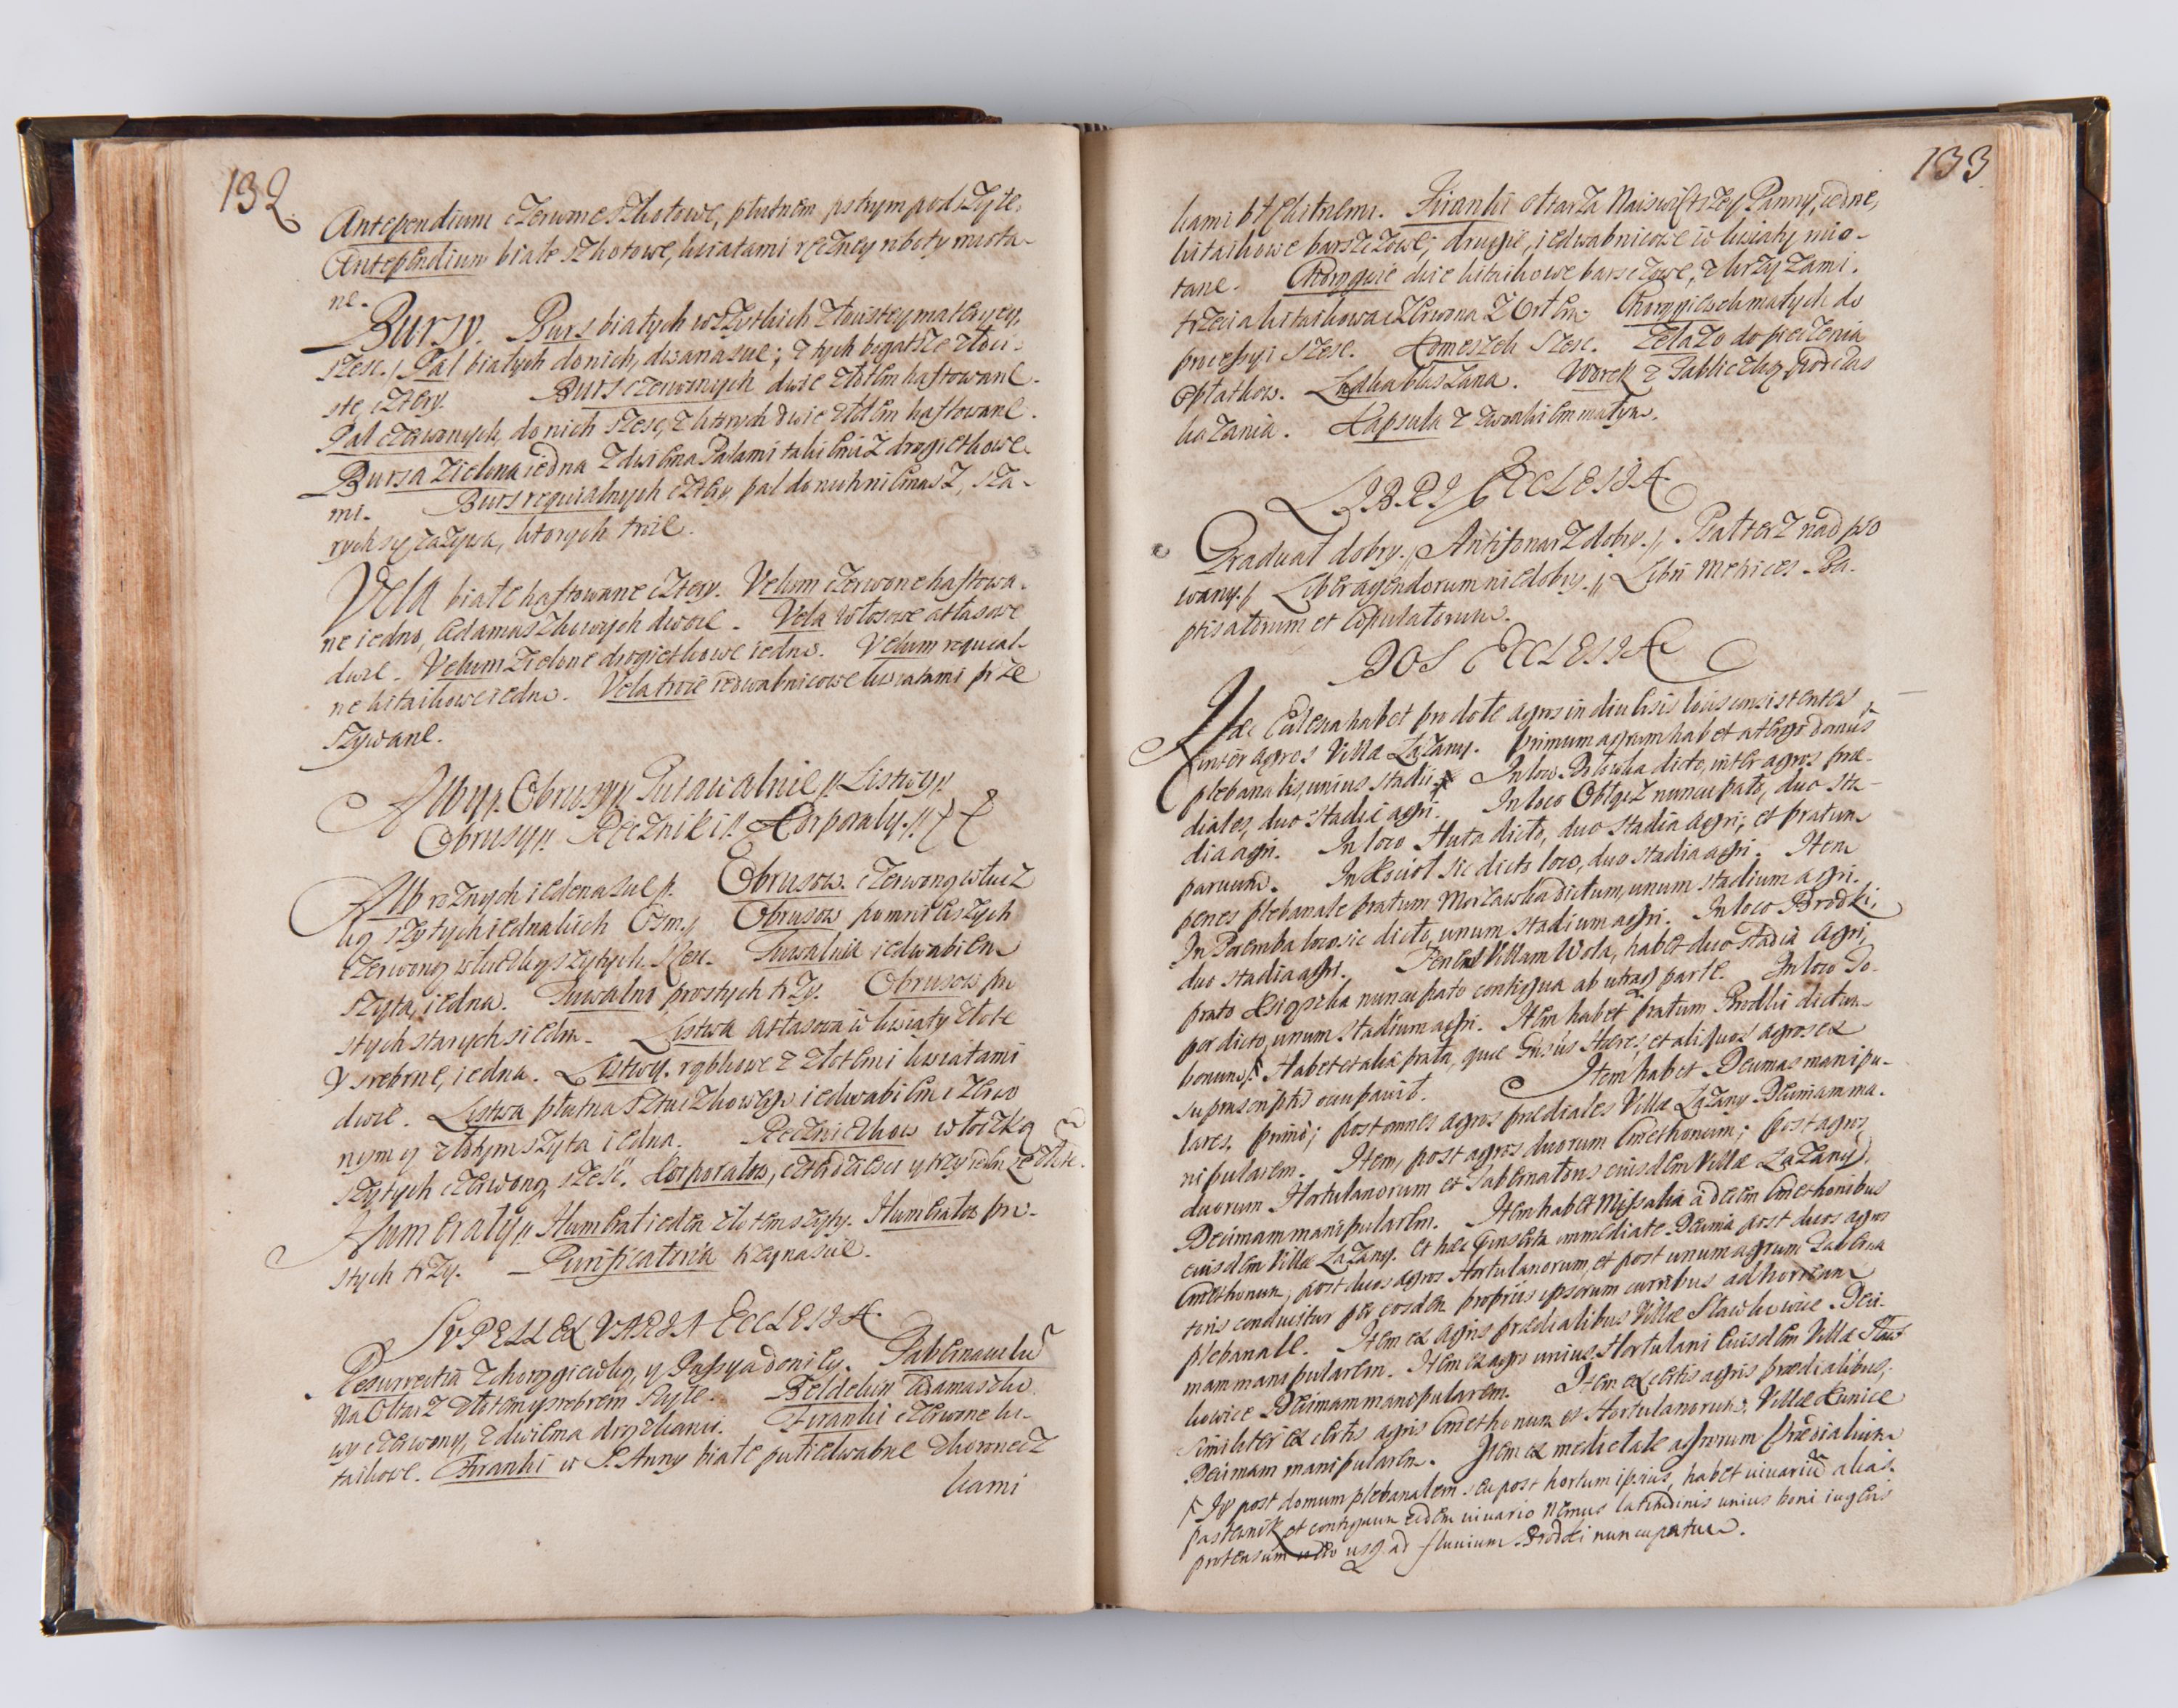 132.
Antependium czerwone szkotowe, płutnem pstrym podszyte,
Antependium białe szkotowe, kwiatami ręczney roboty miota-
ne.
Bursy. Burs białych wszystkich złoistey materyey,
szesc. Pal białych do nich, dwanascie; z tych bogatsze złoci-
ste, cztery. Burs czerwonych dwie złotem haftowane.
Pal czerwonych, do nich szesc, z ktorych dwie złotem haftowane.
Bursa Zielona iedna z dwiema Palami takiemiż drogietkowe-
mi. Burs requialnych cztery, pal do nich nie masz, sta-
rych się zażywa, ktorych troie.
Vela białe haftowane cztery. Velum czerwone haftowa-
ne iedno, adamaszkowych dwoie. Vela włosowe atłasowe
dwie. Velum Zielone drogietkowe iedno. Velum requial-
ne kitaikowe iedno. Vela troie iedwabnicowe kwiatami prze
szywane.
Alby,, Obrusy,, Tuwalnie,, Listwy,,
Obrusy,, Ręczniki,, Korporały.,,
Alb rożnych iedenascie,. Obrusow czerwoną włucz
ką szytych iednakich Osm., Obrusow pomnieiszych
czerwoną włuczką szytych. Szesc. Tuwalnia iedwabiem
szyta, iedna. Tuwalni prostych trzy. Obrusow pro
stych starych siedm. Listwa atłasowa w kwiaty złote
y srebrne, iedna. Listwy rąbkowe z złotemi kwiatami
dwie. Listwa płutna sztuczkowego iedwabiem czerwo
nym y złotym szyta iedna. Ręcznickow włoczką
szytych czerwoną, szesc. Korporałow, czterdziesci y trzy
Humerały,, Humerał ieden złotem szyty. Humerałow pro-
stych trzy. Purificatoria trzynascie.
SUPELLEX VARIA ECCLESIÆ
Resurrectia z chorągiewką, y Passya do niey. Tabernaculu
na Ołtarz złotem y srebrem szyte. Beldekin Adamaszko
wy czerwony, z dwiema drązkami. Firanki czerwone ki-
taikowe. Firanki w S. Anny białe putiedwabne z koronecz
kami
133.
kami błękitnemi. Firanki ołtarza Naiswiętszey Panny, iedne,
kitaikowe barszczowe, drugie, iedwabnicowe w kwiaty mio-
tane. Chorągwie dwie kitaikowe barszczowe, z krzyżami.
trzecia kitaikowa czerwona z Orłem. Chorągiewek małych do
procesyi szesc. Komeszek szesc. Zelazo do pieczenia
Opłatkow. Lodka blaszana. Worek z Tabliczką podczas
kazania. Kapsula z zwonkiem małym.
LIBRI ECCLESIÆ
Graduał dobry.,, Antifonarz dobry.,, Psałterz nadpso
wany.,, Liber agendorum niedobry.,, Libri metrices Ba-
ptisatorum et Copulatorum.
DOS ECCLESIÆ
Hæc Ecclesia habet pro dote agros in diuersis locis consistentes
inter agros Villæ Łążany. Primum agrum habet a tergo domus
plebanalis, unius stadii. In loco dicto, inter agros præ-
diales, duo stadia agri. In loco Obłąz nuncupato, duo sta-
dia agri. In loco Huta dicto, duo stadia agri, et pratum
paruum. In Kocioł sic dicto loco, duo stadia agri. Item
penes plebanale pratum dictum, unum stadium agri.
In Poremba loco sic dicto, unum stadium agri. In loco Brodki,
duo stadia agri. Penes Villam Wola, habet duo stadia agri,
prato nuncupato contigua ab utraque parte. In loco Do-
per dicto, unum stadium agri. Item habet pratum dictum
bonum. Habet et alia prata, quæ Gnsus Hæres, et aliquos agros ex
suprascriptis occupauit. Item habet Decimas manipu-
lares, primo; post omnes agros prædiales Villæ Łążany Decimam ma-
nipularem. Item, post agros duorum Cmethonum; post agros
duorum Hortulanorum et Tabernatoris eiusdem Villæ Łążany
Decimam manipularem. Item habet Missalia a decem Cmethonibus
eiusdem Villæ Łążany. et hæc immediate Decima post duos agros
Cmethonum, post duos agros Hortulanorum, et post unum agrum Taberna
toris conducitur per eosdem propriis ipsorum curribus ad horreum
plebanale. Item ex agris prædialibus Villæ Sławkowice Deci-
mam manipularem. Item ex agro unius Hortulani Eiusdem Villæ Sław-
kowice Decimam manipularem. Item ex certis agris prædialibus,
similiter ex certis agris Cmethonum et Hortulanorum, Villæ Kunice
Decimam manipularem. Item ex medietate agrorum Prædialium
post domum plebanalem seu post hortum ipsius, habet viuariũ alias.
pasternik et contiguum eidem viuario nemus latitudinis unius boni iugeris
protensum usq ad fluuium Brodki nuncupatum.